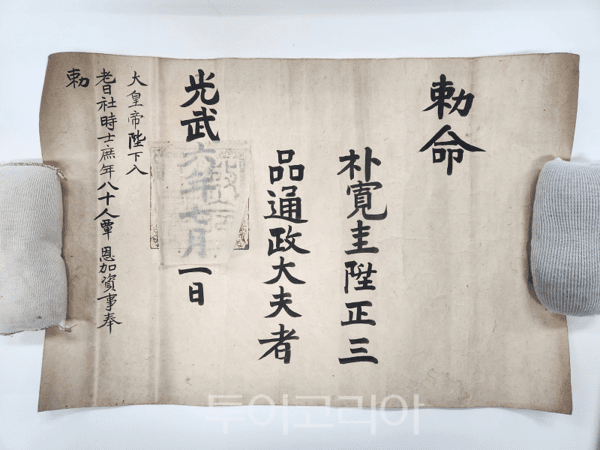 勅命
朴寬圭陞正三
品通政大夫者
光武六年七月一日
大皇帝陛下入
耆社時士庶年八十人覃恩加資事奉
勅
투어코리아